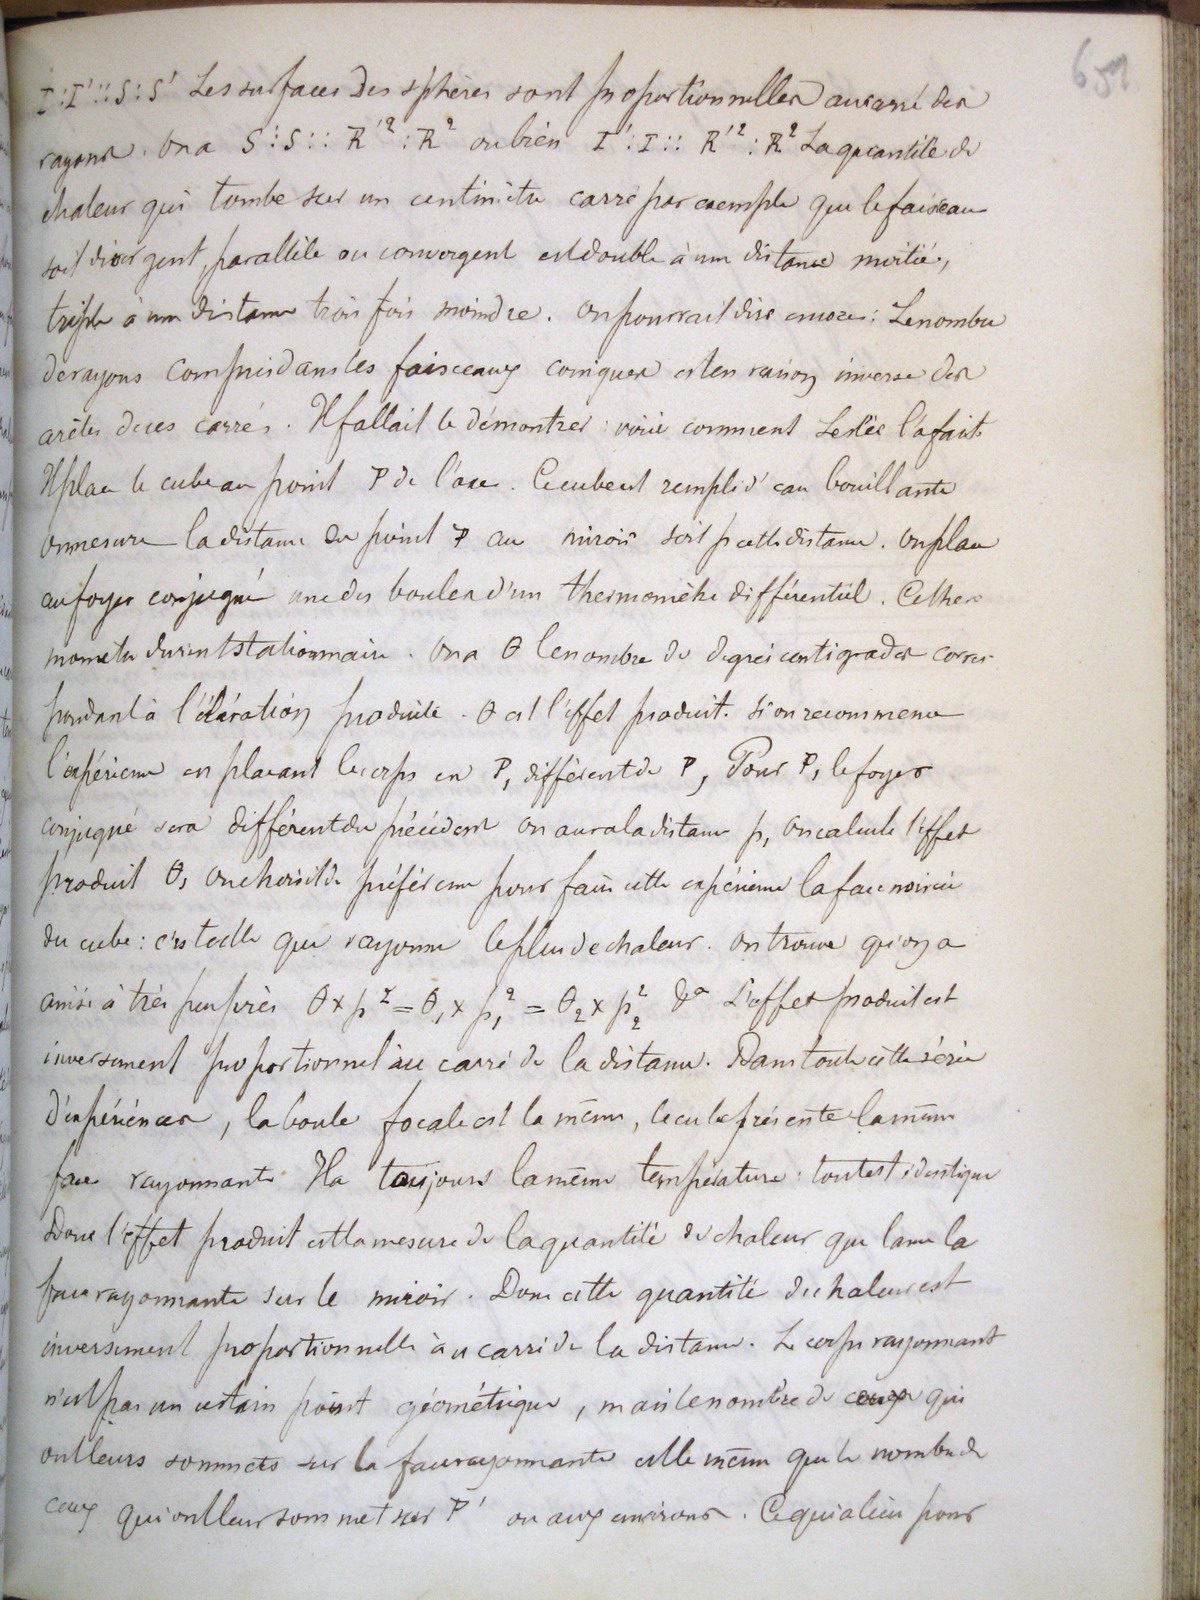 651
I : I' :: S : S' Les surfaces des sphères sont proportionnelles au carré des
rayons. On a S : S :: R'² : R² ou bien I' : I :: R'² : R² La quantité de
chaleur qui tombe sur un centimètre carré par exemple que le faisceau
soit divergent, parallèle ou convergent est double à une distance moitié,
triple à une distance trois fois moindre. On pourrait dire encore : Le nombre
de rayons compris dans les faisceaux coniques est en raison inverse des
arêtes de ces carrés. Il fallait le démontrer : voici comment Leslie l'a fait.
Il place le cube au point P de l'axe. Ce cube est rempli d'eau bouillante
on mesure la distance du point P au miroir soit p cette distance. On place
au foyer conjugué une des boules d'un thermomètre différentiel. Ce ther
momètre devient stationnaire. On a θ le nombre de degrés centigrades corres
pondant à l'élévation produite. θ est l'effet produit. Si on recommence
l'expérience en plaçant le corps en P, différent de P, Pour P, le foyer
conjugué sera différent du précédent on aura la distance p, on calcule l'effet
produit θ, on choisit de préférence pour faire cette expérience la face noircie
du cube : c'est celle qui rayonne le plus de chaleur. On trouve qu'on a
ainsi à très peu près θ × p² = θ, × p,² = θ₂ × p₂² D° L'effet produit est
inversement proportionnel au carré de la distance. Dans toute cette série
d'expériences, la boule focale est la même, le cube présente la même
face rayonnante Il a toujours la même température : tout est identique
Donc l'effet produit est la mesure de la quantité de chaleur que lance la
face rayonnante sur le miroir. Donc cette quantité de chaleur est
inversement proportionnelle à u carré de la distance. Le corps rayonnant
n'est pas un certain point géométrique, mais le nombre de qui
ont leurs sommets sur la face rayonnante est le même que le nombre de
ceux qui ont leur sommet sur P' ou aux environs. Ce qui a lieu pour